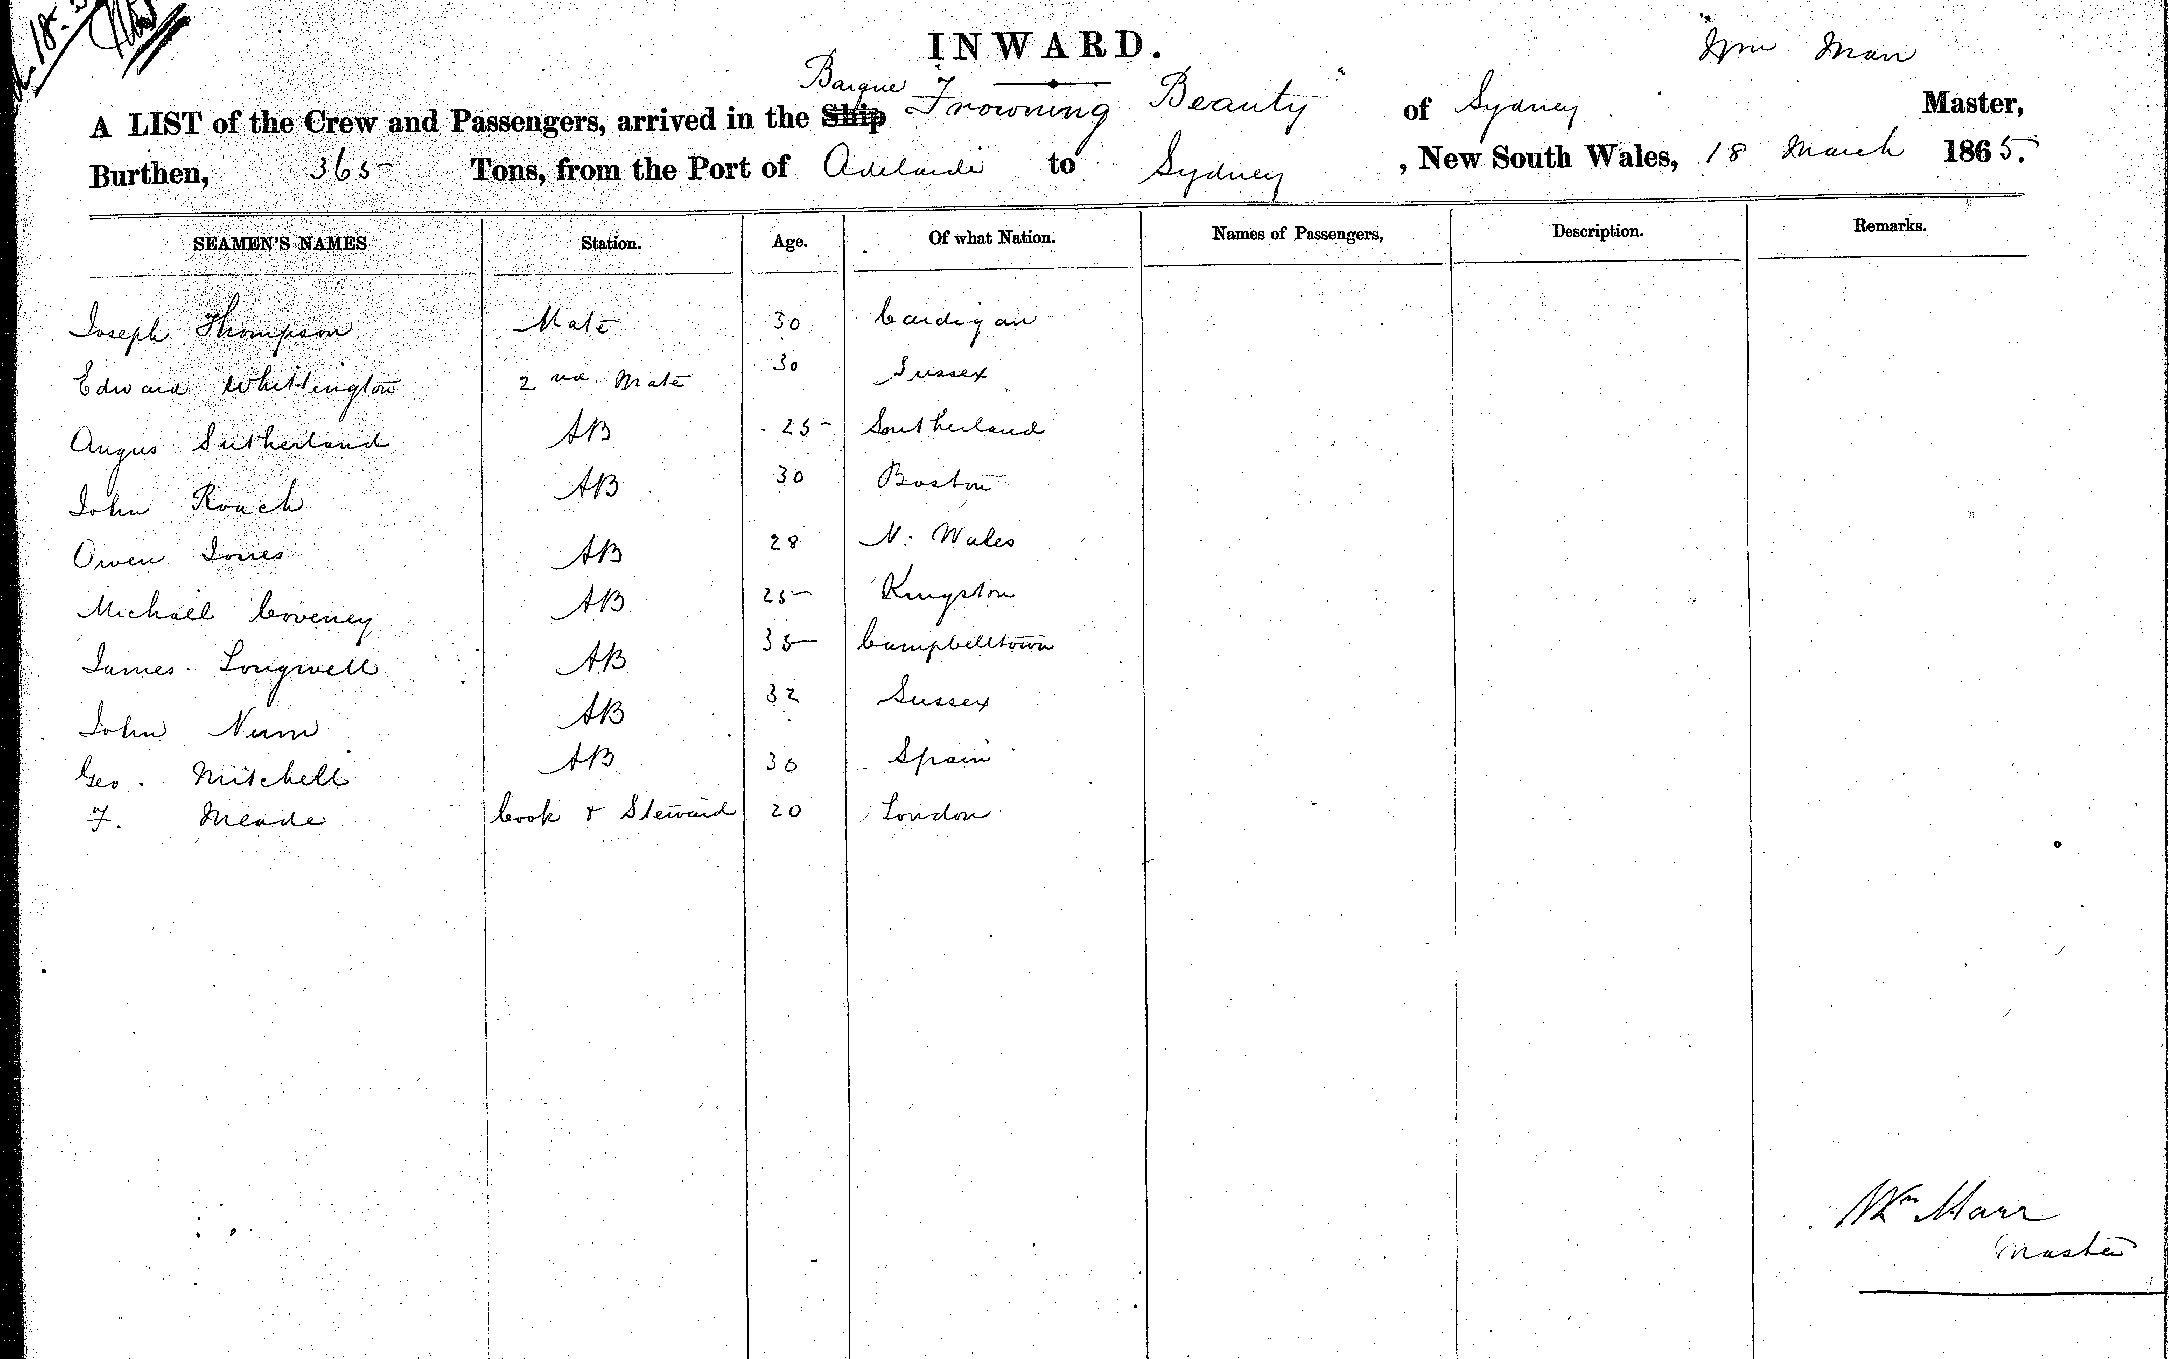 18
INWARD.
Wm Marr
Barque
A LIST of the Crew and Passengers, arrived in the Ship "Frowning Beauty" of Sydney Master,
Burthen, 365 Tons, from the Port of Adelaide to Sydney, New South Wales, 18 March 1865.
SEAMEN'S NAMES Station. Age. Of what Nation. Names of Passengers, Description. Remarks.
Joseph Thompson Mate 30 Cardigan
Edward Whittington 2nd Mate 30 Sussex
Angus Sutherland AB 25 Southerland
John Roach AB 30 Boston
Owen Jones AB 28 N. Wales
Michael Coveney AB 25 Kingston
James Longwell AB 35 Campbelltown
John Nunn AB 32 Sussex
Geo. Mitchell AB 30 Spain
F. Meade Cook & Steward 20 London
Wm Marr
Master